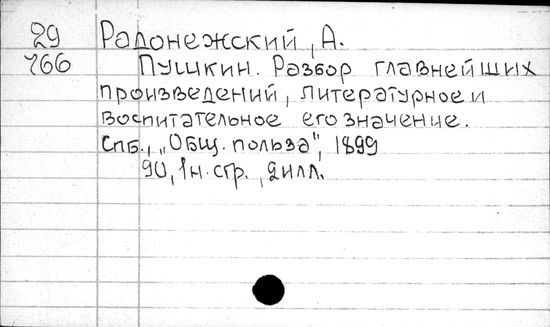 29 Радонежский, А.
766 Пушкин. Разбор главнейших
произведений, литературное и
воспитательное его значение.
Спб., "Общ. польза", 1899
90, 1 н. стр., 2 илл.